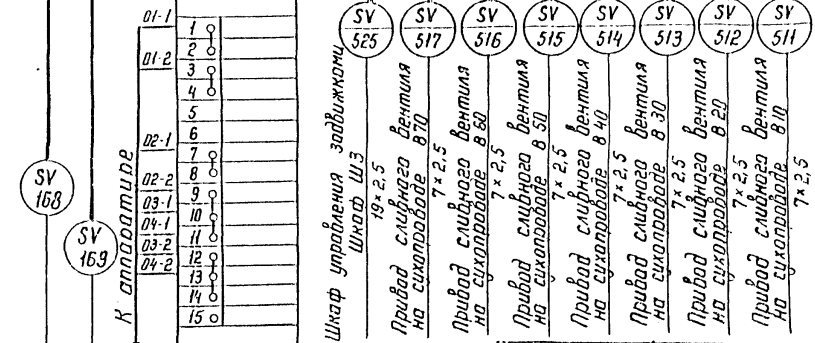 SV
168
SV
169
К аппаратуре
01-1
01-2
02-1
02-2
03-1
04-1
03-2
04-2
1
2
3
4
5
6
7
8
9
10
11
12
13
14
15
SV
525
Шкаф управления задвижкоми
Шкаф ШЗ
19×2,5
SV
517
Привод сливного вентиля
на сухопроводе В70
7×2,5
SV
516
Привод сливного вентиля
на сухопроводе В60
7×2,5
SV
515
Привод сливного вентиля
на сухопроводе В50
7×2,5
SV
514
Привод сливного вентиля
на сухопроводе В40
7×2,5
SV
513
Привод сливного вентиля
на сухопроводе В30
7×2,5
SV
512
Привод сливного вентиля
на сухопроводе В20
7×2,5
SV
511
Привод сливного вентиля
на сухопроводе В10
7×2,5